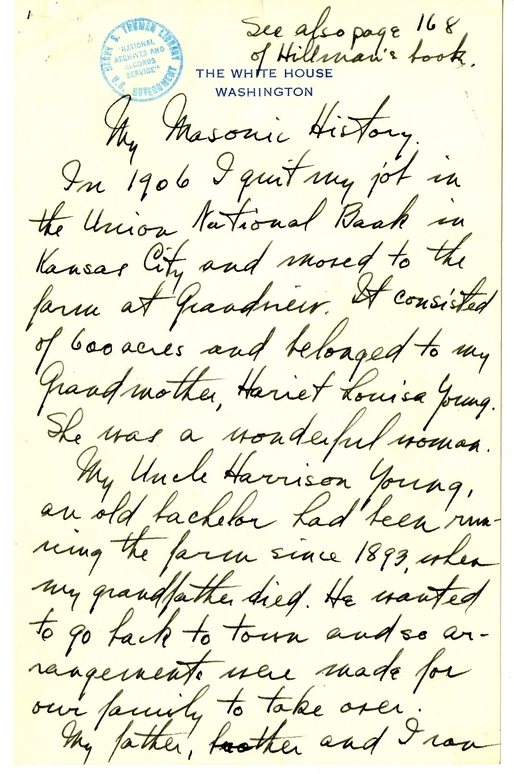 1
See also page 168
of Hillman's book.
HARRY S. TRUMAN LIBRARY
"NATIONAL
ARCHIVES AND
RECORDS
SERVICE"
U.S. GOVERNMENT
THE WHITE HOUSE
WASHINGTON
My Masonic History.
In 1906 I quit my job in
the Union National Bank in
Kansas City and moved to the
farm at Grandview. It consisted
of 600 acres and belonged to my
Grandmother, Hariet Louisa Young.
She was a wonderful woman.
My Uncle Harrison Young,
an old bachelor had been run-
ning the farm since 1893, when
my grandfather died. He wanted
to go back to town and so ar-
rangements were made for
our family to take over.
My father, brother and I ran